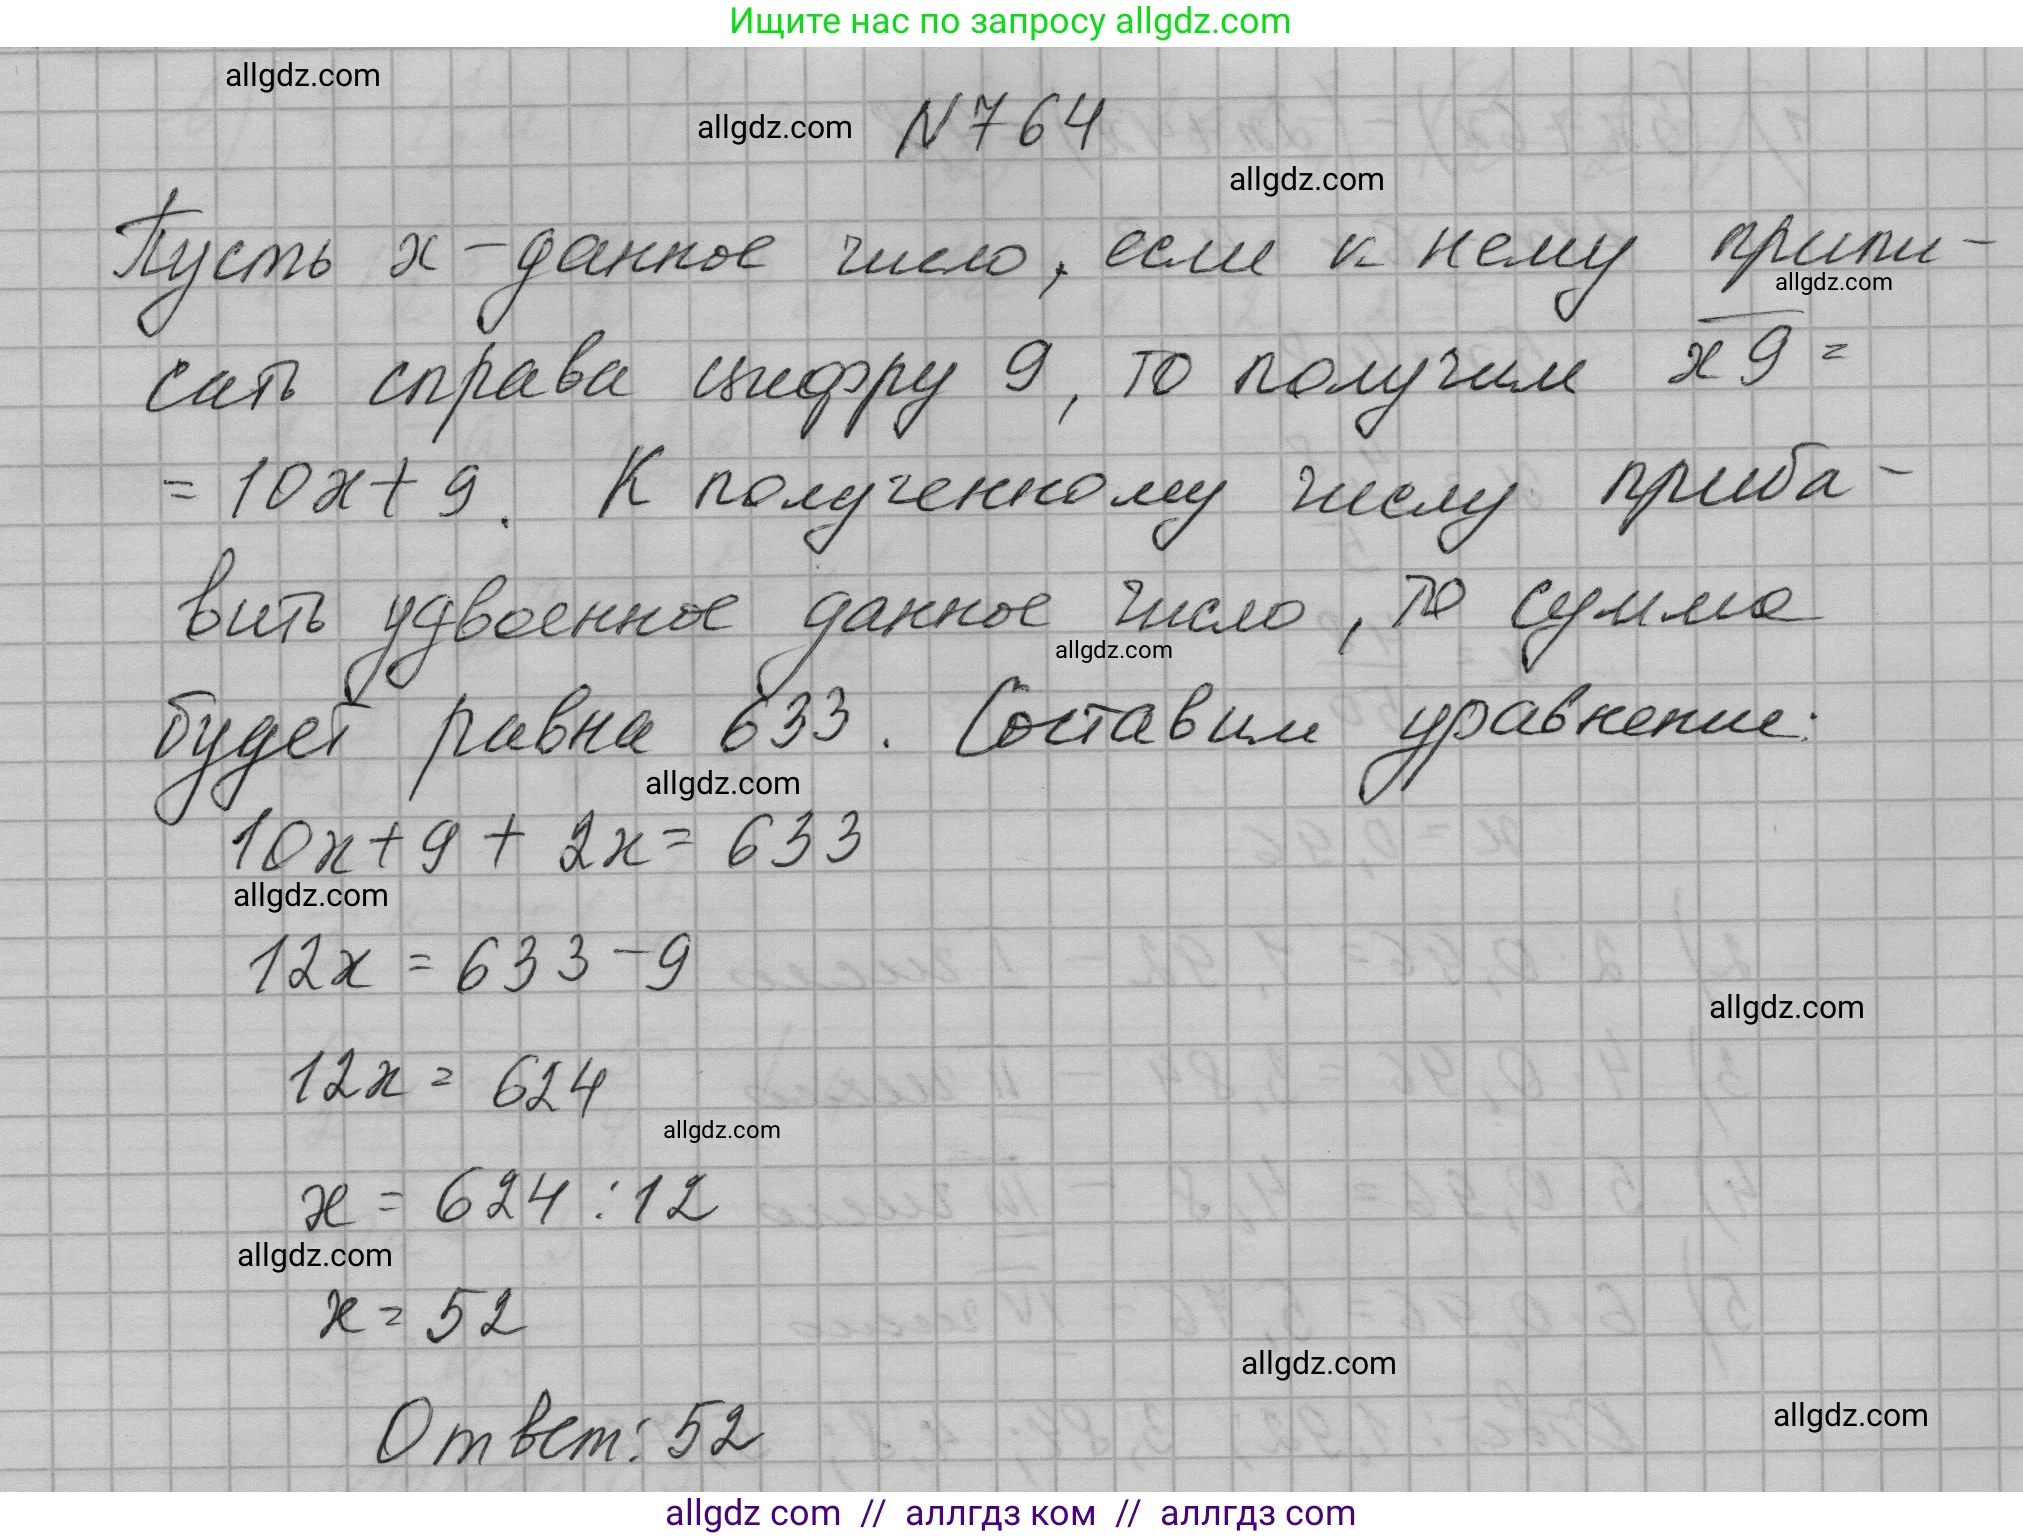 Ищите нас по запросу allgdz.com
allgdz.com
allgdz.com
N 764
allgdz.com
Пусть x - данное число, если к нему припи-
allgdz.com
сать справа цифру 9, то получим x9 =
= 10x + 9. К полученному числу приба-
вить удвоенное данное число, то сумма
allgdz.com
будет равна 633. Составим уравнение:
allgdz.com
10x + 9 + 2x = 633
allgdz.com
12x = 633 - 9
allgdz.com
12x = 624
allgdz.com
x = 624 : 12
allgdz.com
x = 52
allgdz.com
allgdz.com
Ответ: 52
allgdz com // аллгдз ком // аллгдз com